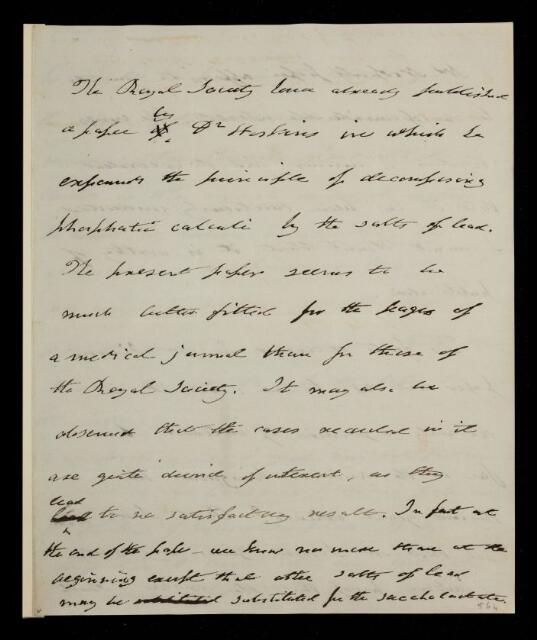 The Royal Society have already published
a paper by Dr Hoskins in which he
expounds the principle of decomposing
phosphatic calculi by the salts of lead.
The present paper seems to be
much better fitted for the pages of
a medical journal than for those of
the Royal Society. It may also be
observed that the cases recorded in it
are quite devoid of interest, as they
lead to no satisfactory result. In fact at
the end of the paper we know no more than at the
beginning except that other salts of lead
may be substituted for the saccholactate.